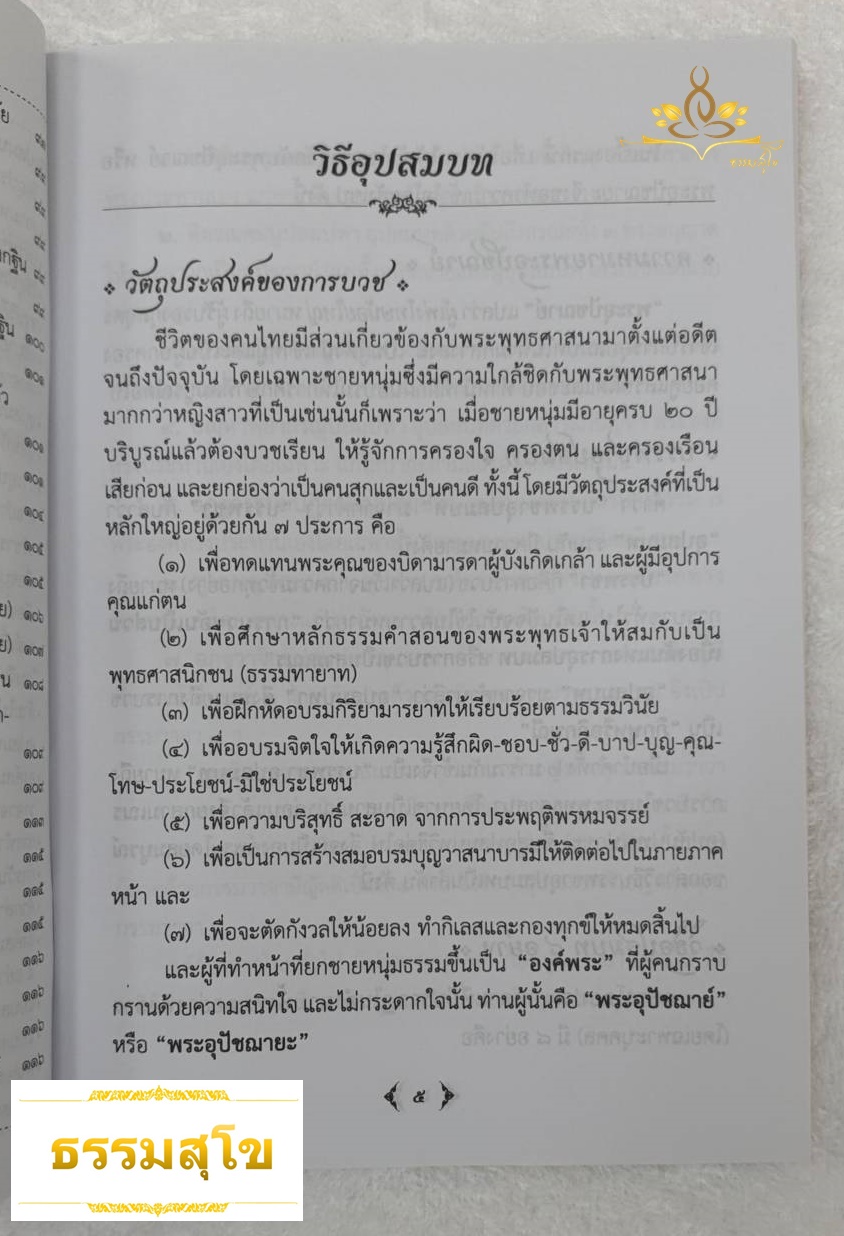 ธรรมสุโข
วิธีอุปสมบท
วัตถุประสงค์ของการบวช
ชีวิตของคนไทยมีส่วนเกี่ยวข้องกับพระพุทธศาสนามาตั้งแต่อดีต
จนถึงปัจจุบัน โดยเฉพาะชายหนุ่มซึ่งมีความใกล้ชิดกับพระพุทธศาสนา
มากกว่าหญิงสาวที่เป็นเช่นนั้นก็เพราะว่า เมื่อชายหนุ่มมีอายุครบ ๒๐ ปี
บริบูรณ์แล้วต้องบวชเรียน ให้รู้จักการครองใจ ครองตน และครองเรือน
เสียก่อน และยกย่องว่าเป็นคนสุกและเป็นคนดี ทั้งนี้ โดยมีวัตถุประสงค์ที่เป็น
หลักใหญ่อยู่ด้วยกัน ๗ ประการ คือ
(๑) เพื่อทดแทนพระคุณของบิดามารดาผู้บังเกิดเกล้า และผู้มีอุปการ
คุณแก่ตน
(๒) เพื่อศึกษาหลักธรรมคำสอนของพระพุทธเจ้าให้สมกับเป็น
พุทธศาสนิกชน (ธรรมทายาท)
(๓) เพื่อฝึกหัดอบรมกิริยามารยาทให้เรียบร้อยตามธรรมวินัย
(๔) เพื่ออบรมจิตใจให้เกิดความรู้สึกผิด-ชอบ-ชั่ว-ดี-บาป-บุญ-คุณ-
โทษ-ประโยชน์-มิใช่ประโยชน์
(๕) เพื่อความบริสุทธิ์ สะอาด จากการประพฤติพรหมจรรย์
(๖) เพื่อเป็นการสร้างสมอบรมบุญวาสนาบารมีให้ติดต่อไปในภายภาค
หน้า และ
(๗) เพื่อจะตัดกังวลให้น้อยลง ทำกิเลสและกองทุกข์ให้หมดสิ้นไป
และผู้ที่ทำหน้าที่ยกชายหนุ่มธรรมขึ้นเป็น “องค์พระ” ที่ผู้คนกราบ
กร่านด้วยความสนิทใจ และไม่กระดากใจนั้น ท่านผู้นั้นคือ “พระอุปัชฌาย์”
หรือ “พระอุปัชฌายะ”
๕
ธรรมสุโข